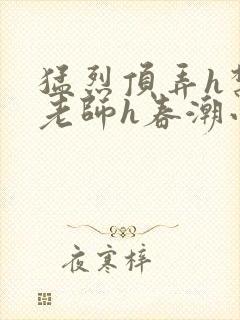 猛烈頂弄h
老師h春潮
夜寒梓